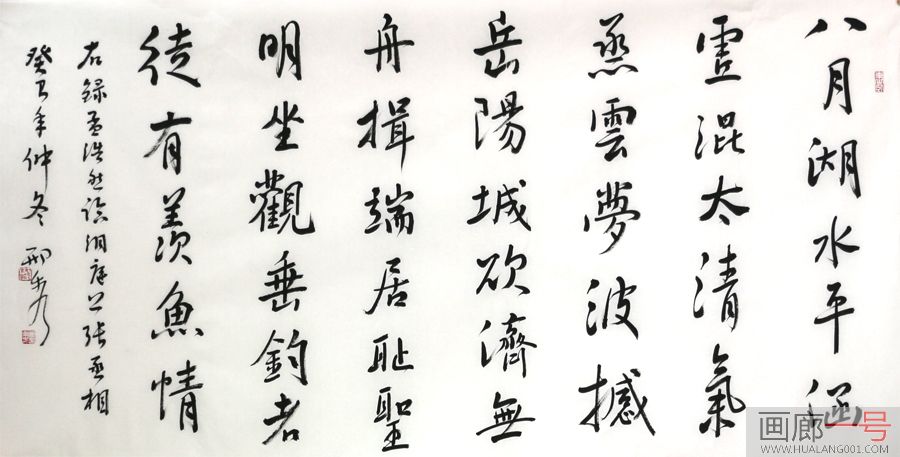 八月湖水平涵
虛混太清氣
蒸雲夢波撼
岳陽城欲濟無
舟楫端居耻聖
明坐觀垂釣者
徒有羨魚情
右録孟浩然臨洞庭上張丞相
癸巳年仲冬
画廊一号
WWW.HUALANG001.COM